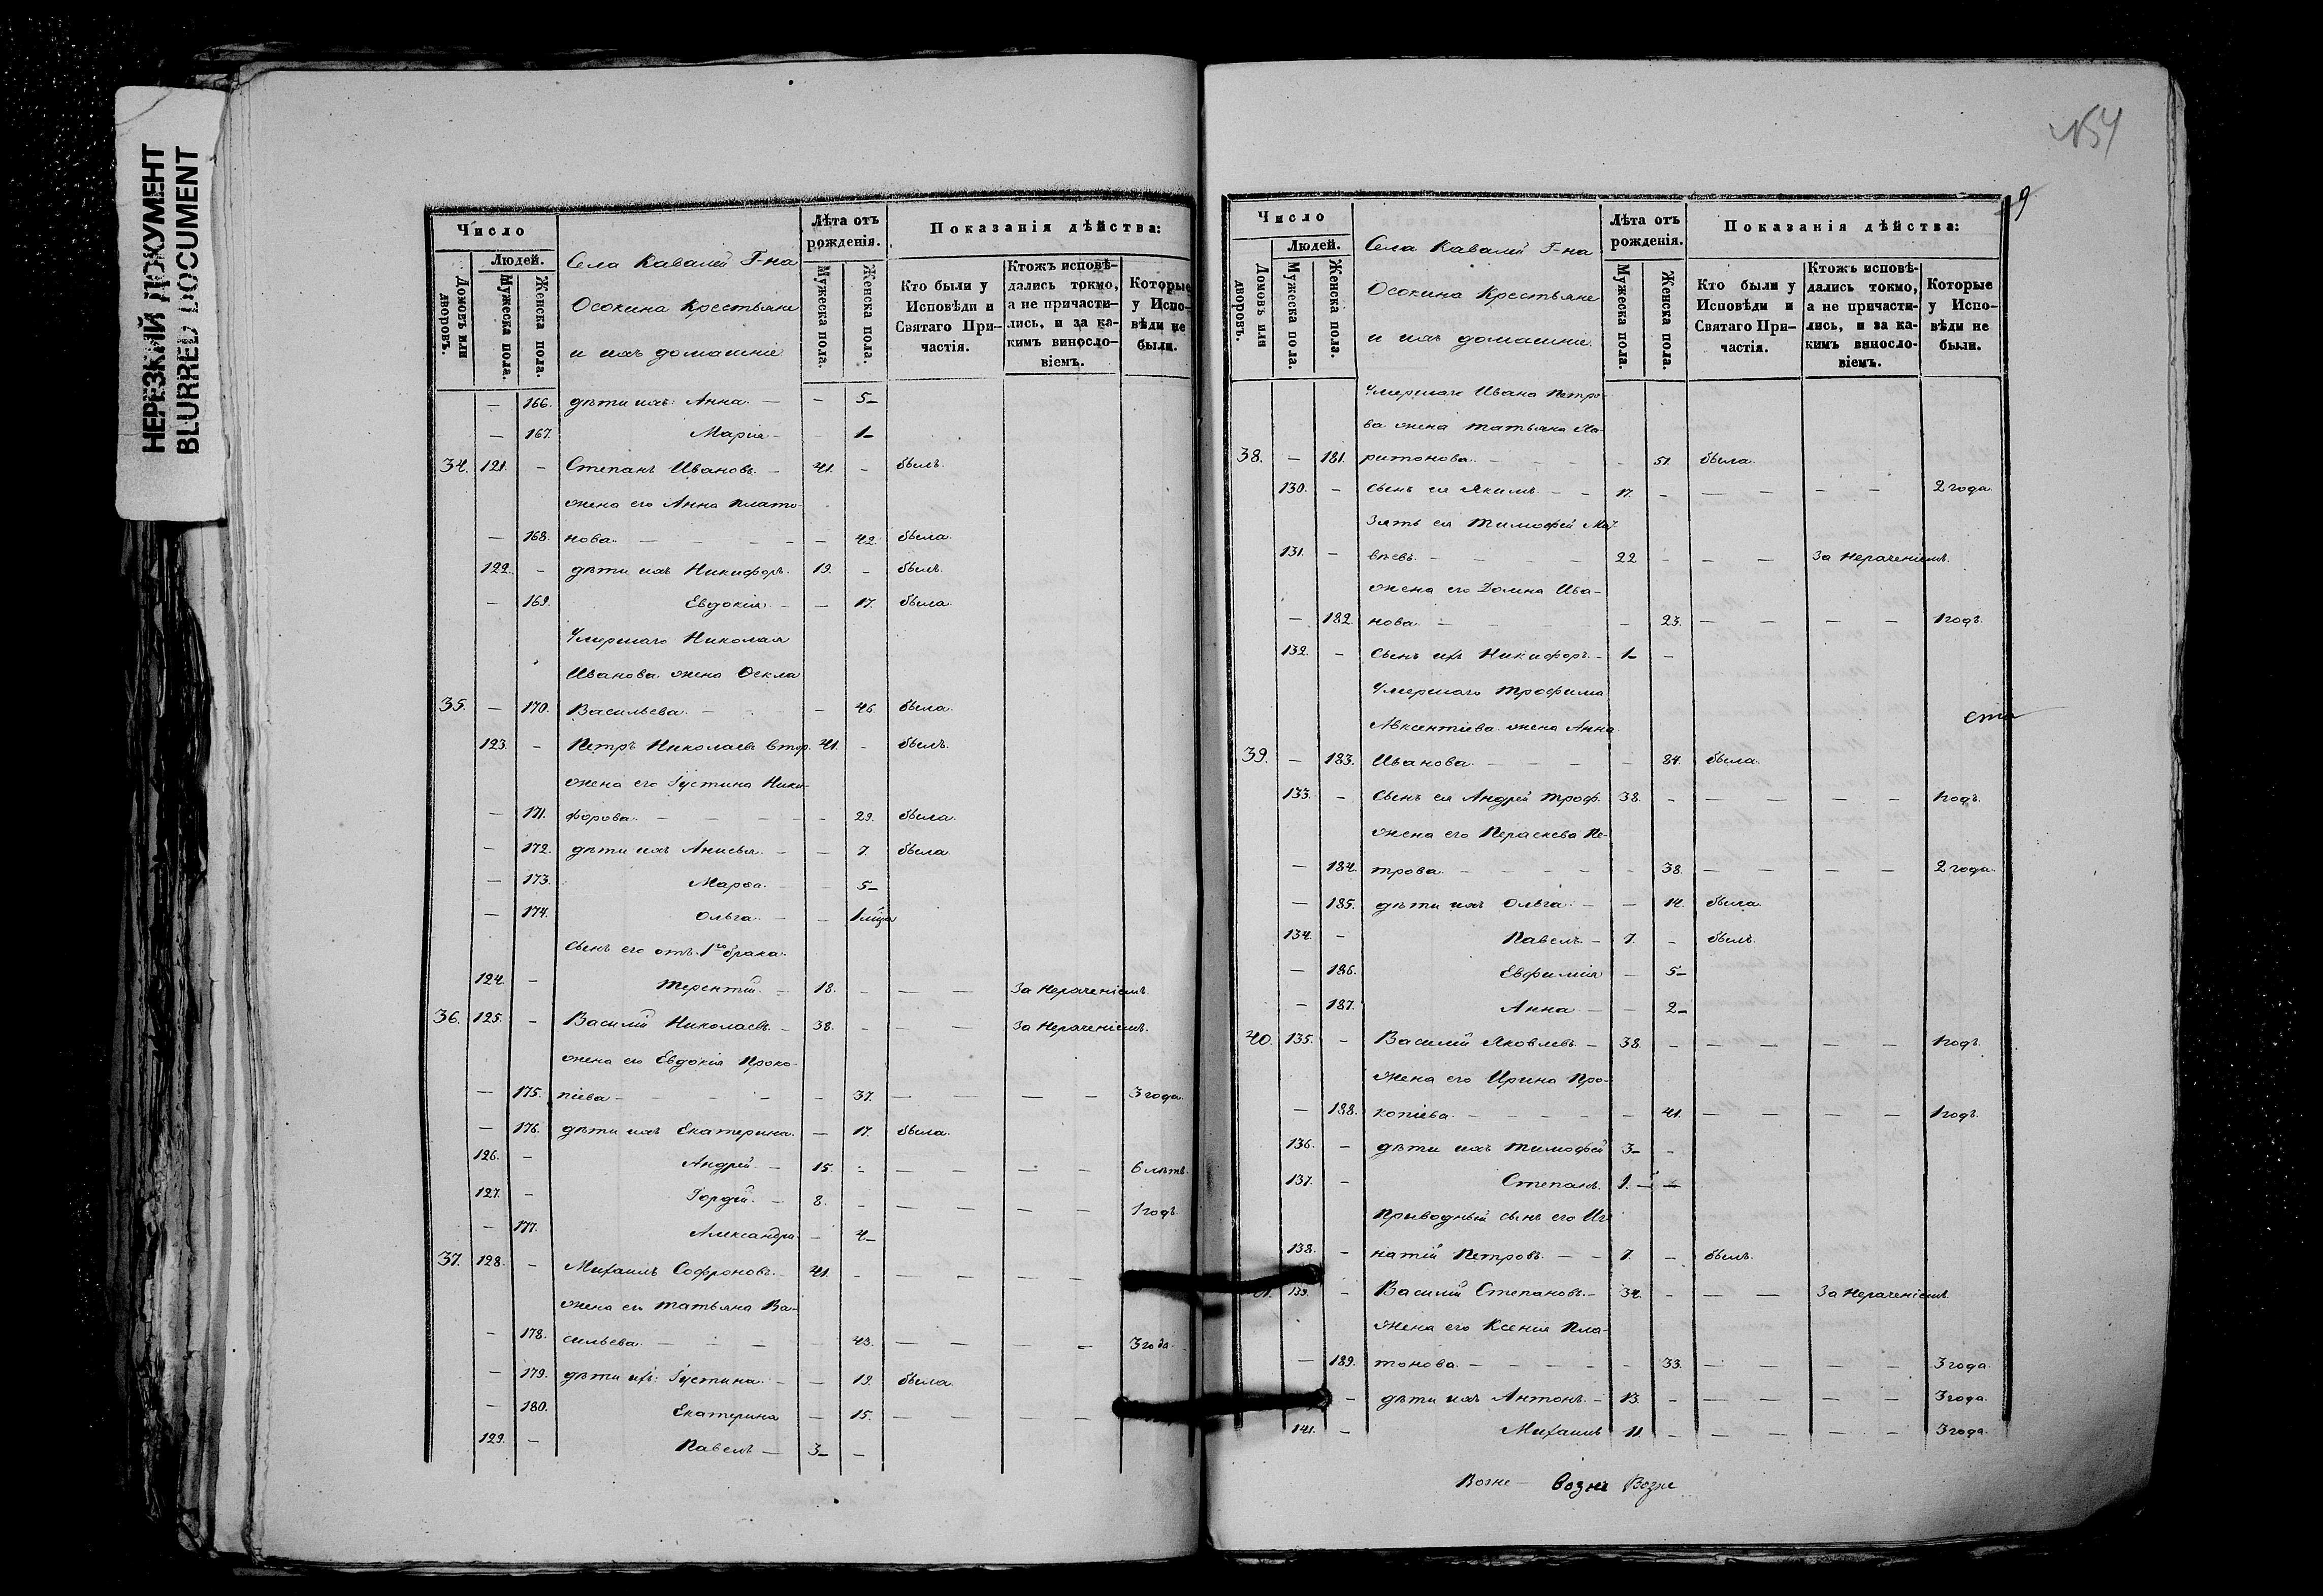 НЕРЕЗКИЙ ДОКУМЕНТ
BLURRED DOCUMENT
Число
Людей.
Домовъ или дворовъ.
Мужеска пола.
Женска пола.
Села Кавалей Г-на
Осокина Крестьяне
и ихъ домашніе
Лѣта отъ рожденія.
Мужеска пола.
Женска пола.
Показанія дѣйства:
Кто были у Исповѣди и Святаго При-частія.
Ктожъ исповѣ-дались токмо, а не причасти-лись, и за ка-кимъ винослo-віемъ.
Которые у Испо-вѣди не были.
— 166. дѣти ихъ: Анна. — — 5 —
— 167. Марія — — 1 —
34. 121. — Степанъ Ивановъ. — 41. — былъ.
жена его Анна Плато-
— 168. нова. — — — — 42. была.
122. — дѣти ихъ Никифоръ. 19. — былъ.
— 169. Евдокія. — — 17. была.
Умершаго Николая
Иванова жена Ѳекла
35. — 170. Васильева. — — — 46. была.
123. — Петръ Николаевъ Втор. 41. — былъ.
жена его Іустина Ники-
— 171. форова. — — — — 29. была.
— 172. дѣти ихъ Анисья. — — 7. была.
— 173. Марѳа. — — 5 —
— 174. Ольга. — — 1 мѣца
сынъ его отъ 1го брака.
124. — Терентій. — 18. — — — За нераченіемъ.
36. 125. — Василій Николаевъ. — 38. — — — За нераченіемъ.
жена его Евдокія Проко-
— 175. піева — — — — 37. — — — — 3 года.
— 176. дѣти ихъ Екатерина. — 17. была.
126. — Андрей. — 15. — — — — — 6 лѣтъ.
127. — Гордѣй. — 8. — — — — — 1 годъ.
— 177. Александра. — 4 —
37. 128. — Михаилъ Софроновъ. — 41. — — — — —
жена его Татьяна Ва-
— 178. сильева. — — — — 43. — — — — 3 года.
— 179. дѣти ихъ: Іустина. — — 19. была.
— 180. Екатерина — 15. — — — —
129. — Павелъ — 3 — —
154
9
Число
Людей.
Домовъ или дворовъ.
Мужеска пола.
Женска пола.
Села Кавалей Г-на
Осокина Крестьяне
и ихъ домашніе.
Лѣта отъ рожденія.
Мужеска пола.
Женска пола.
Показанія дѣйства:
Кто были у Исповѣди и Святаго При-частія.
Ктожъ исповѣ-дались токмо, а не причасти-лись, и за ка-кимъ винослo-віемъ.
Которые у Испо-вѣди не были.
Умершаго Ивана Петро-
ва жена Татьяна Ха-
38. — 181. ритонова. — — — — 51. была.
130. — сынъ ея Якимъ. — — 17. — — — — — 2 года.
Зять ея Тимофей Мат-
131. — вѣевъ. — — — 22 — — — За нераченіемъ.
жена его Домна Ива-
— 182. нова. — — — 23. — — — — 1 годъ.
132. — Сынъ ихъ Никифоръ. — 1 — —
Умершаго Трофима
Авксентіева жена Анна
39. — 183. Иванова. — — — — 84. была.
133. — Сынъ ея Андрей Троф. 38. — — — — — 1 годъ.
жена его Пераскева Пе-
— 184. трова. — — — — 38. — — — — 2 года.
— 185. дѣти ихъ Ольга. — — 14. была.
134. — Павелъ. — 7. — былъ.
— 186. Евфимія — 5 —
— 187. Анна — — 2 —
40. 135. — Василій Яковлевъ. — 38. — — — — — 1 годъ.
жена его Ирина Про-
— 188. копіева. — — — — — 41. — — — — 1 годъ.
136. — дѣти ихъ Тимофей 3 — —
137. — Степанъ. 1. — —
Приводный сынъ его Иг-
138. — натій Петровъ. — — 7. — былъ.
139. — Василій Степановъ. — 34. — — — За нераченіемъ.
жена его Ксенія Пла-
— 189. тонова. — — — — 33. — — — — 3 года.
— дѣти ихъ Антонъ. — 13. — — — — — 3 года.
141. — Михаилъ 11. — — — — — 3 года.
Возне — Возне Возне